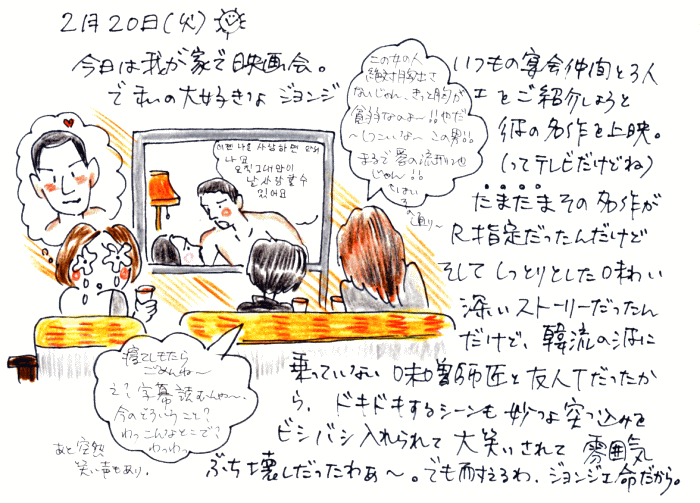 2月20日(火)
今日は我が家で映画会。
で私の大好きなジョンジ
いつもの宴会仲間と3人
ェをご紹介しようと
彼の名作を上映。
(ってテレビだけどね)
たまたまその名作が
R指定だったんだけど
そしてしっとりとした味わい
深いストーリーだったん
だけど、韓流の波に
乗っていない味噌師匠と友人Tだったか
ら、ドキドキするシーンも妙な突っ込みを
ビシバシ入れられて大笑いされて雰囲気
ぶち壊しだったわぁ〜。でも布するわ、ジョンジェ命だから。
この女の人
絶対胸出さ
ないじゃん、きっと胸が
貧弱なのよ〜!!やだ
〜しつこいな〜この男!!
まるで昼の流れ
じゃん!!
나요
오직 그대만이
날 사랑할 수
있어요
寝てしもたら
ごめんね〜
え?字幕読むんや〜、
今のどういうこと?
わっこんなとこで?
わっわっ
あと突然
笑い声もあり。